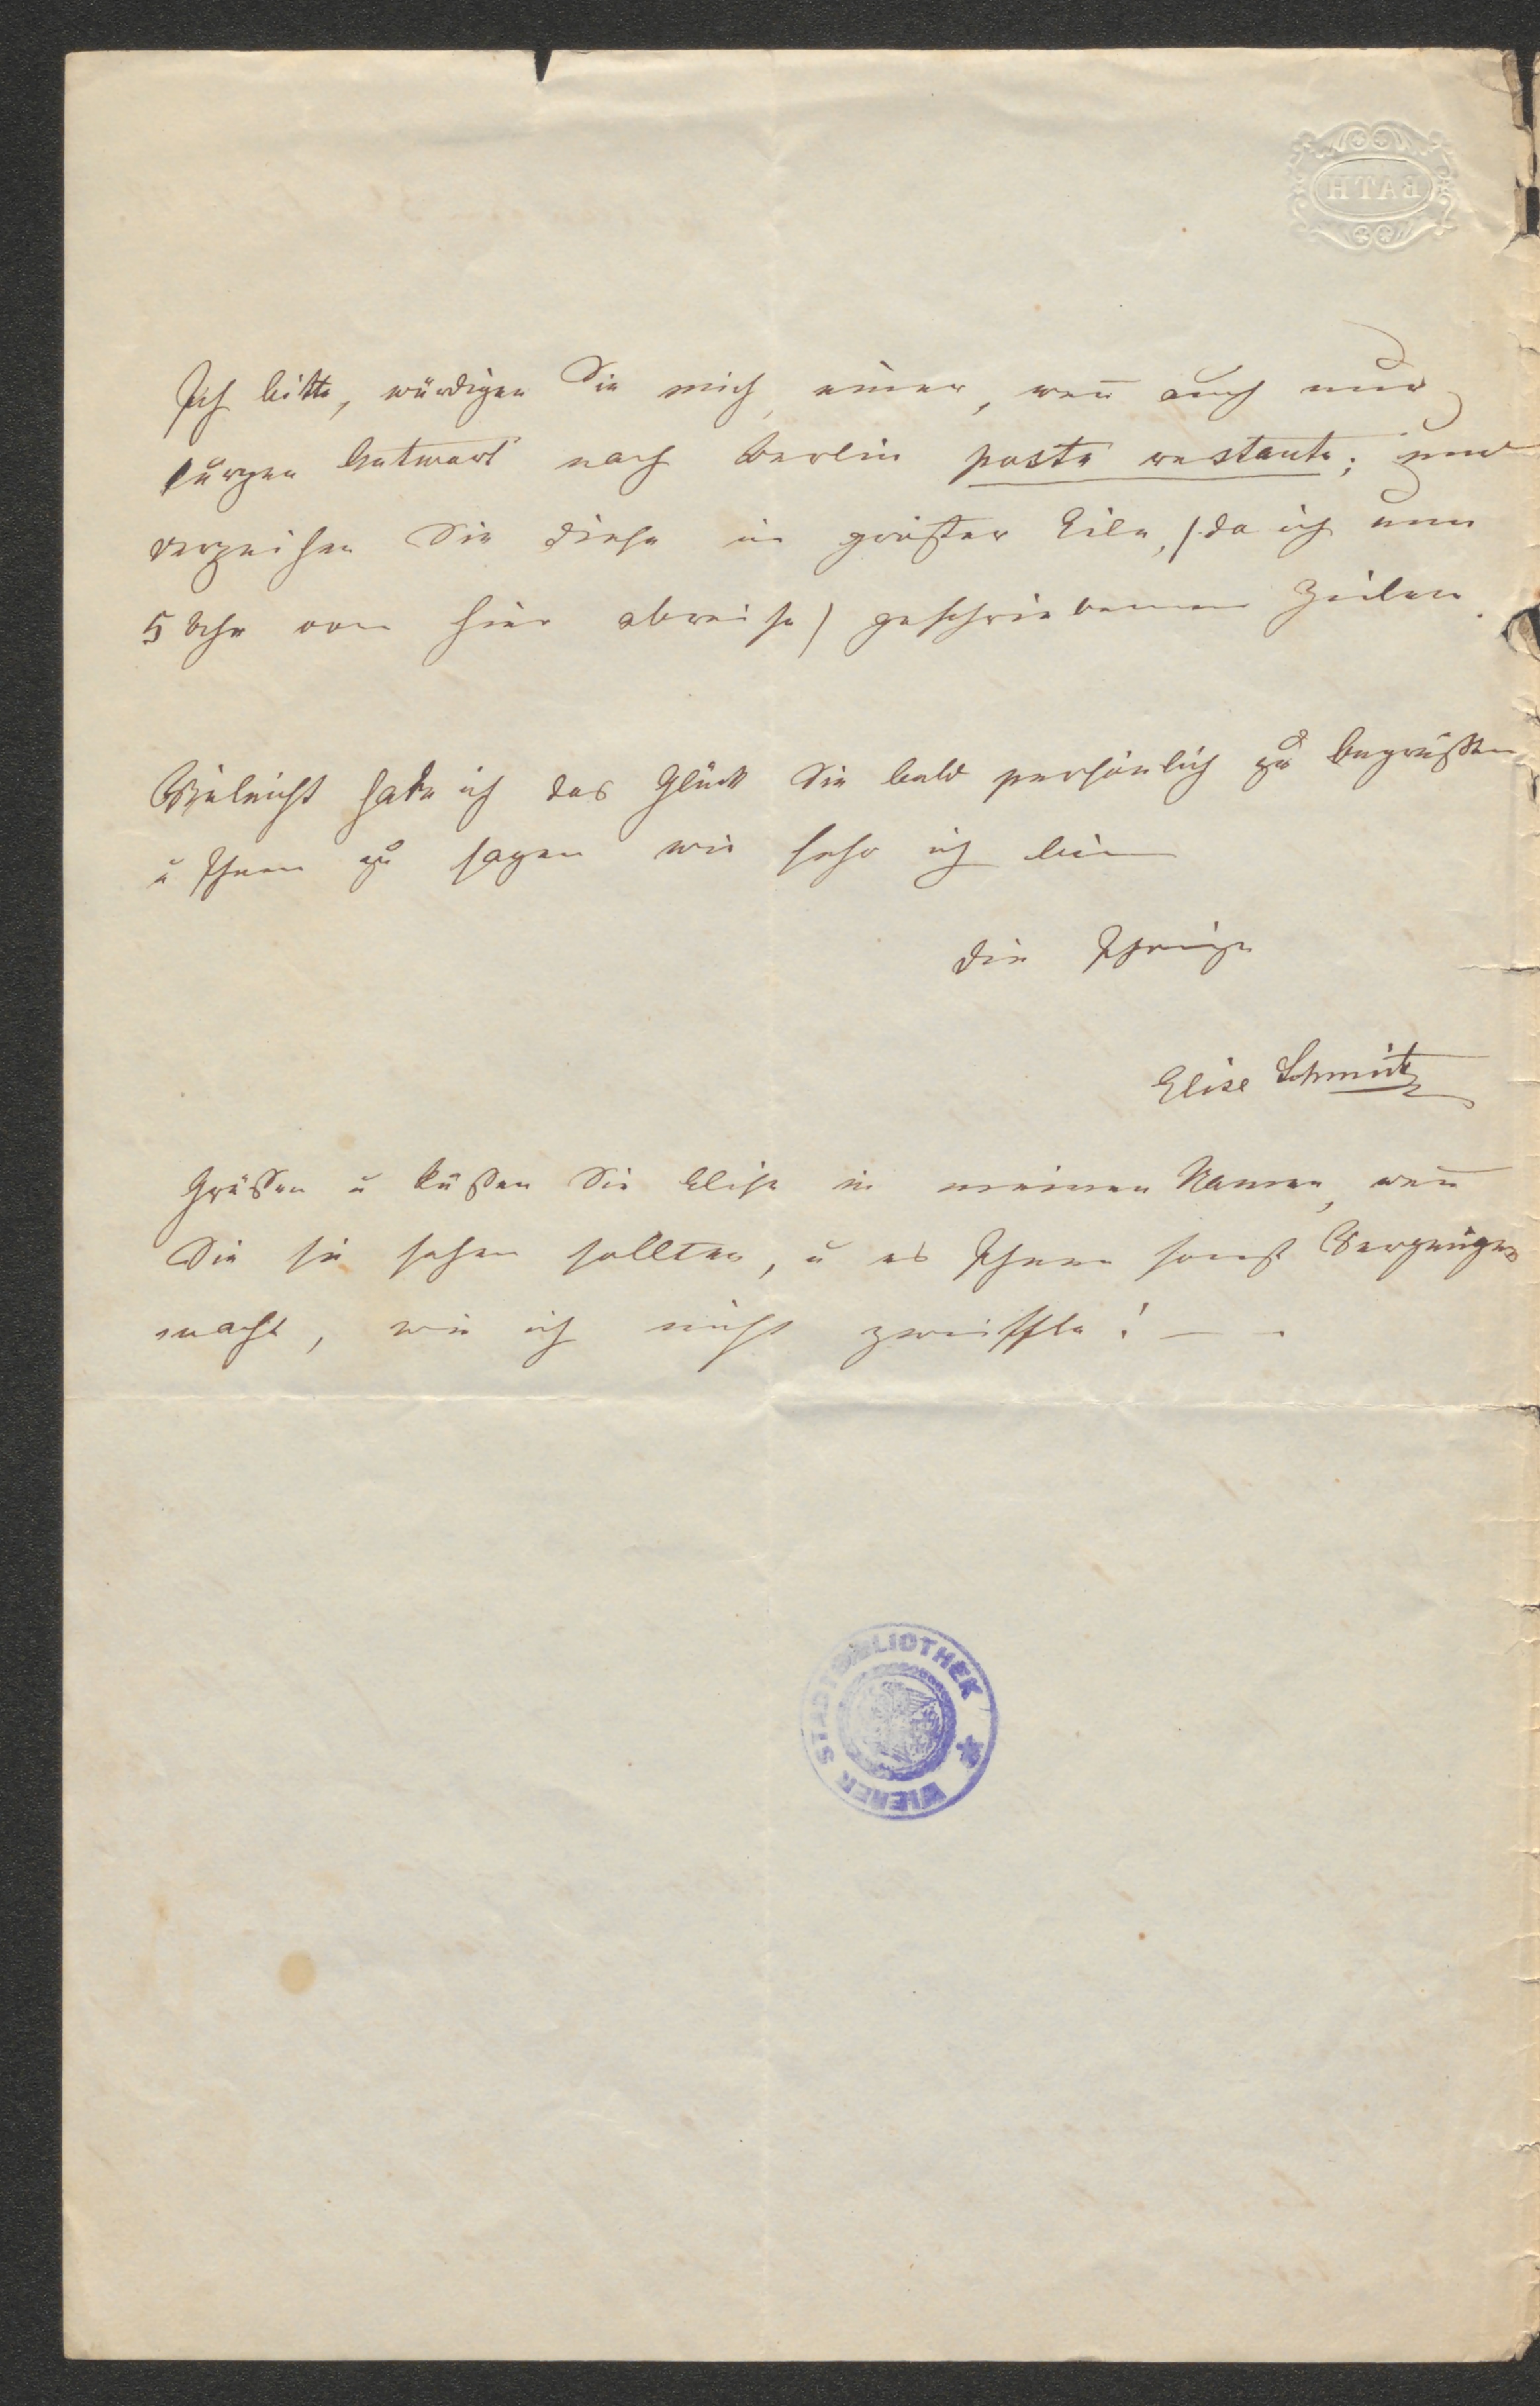 BATH
Ich bitte, würdigen Sie mich, einer, weñ auch nur
kurzen Antwort nach Berlin poste restante; und
verzeihen Sie diese in größter Eile, (da ich um
5 Uhr von hier abreise) geschriebenen Zeilen.
Vieleicht habe ich das Glück Sie bald persönlich zu begrüßen
u Ihnen zu sagen wie sehr ich bin
die Ihrige
Elise Schmidt
Grüßen u küßen Sie Elise in meinen Namen, weñ
Sie sie sehen sollten, u es Ihnen sonst Vergnügen
macht, wie ich nicht zweiffle! — .
WIENER STADTBIBLIOTHEK *